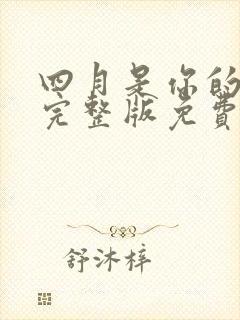 四月是你的
完整版免费
舒沐梓